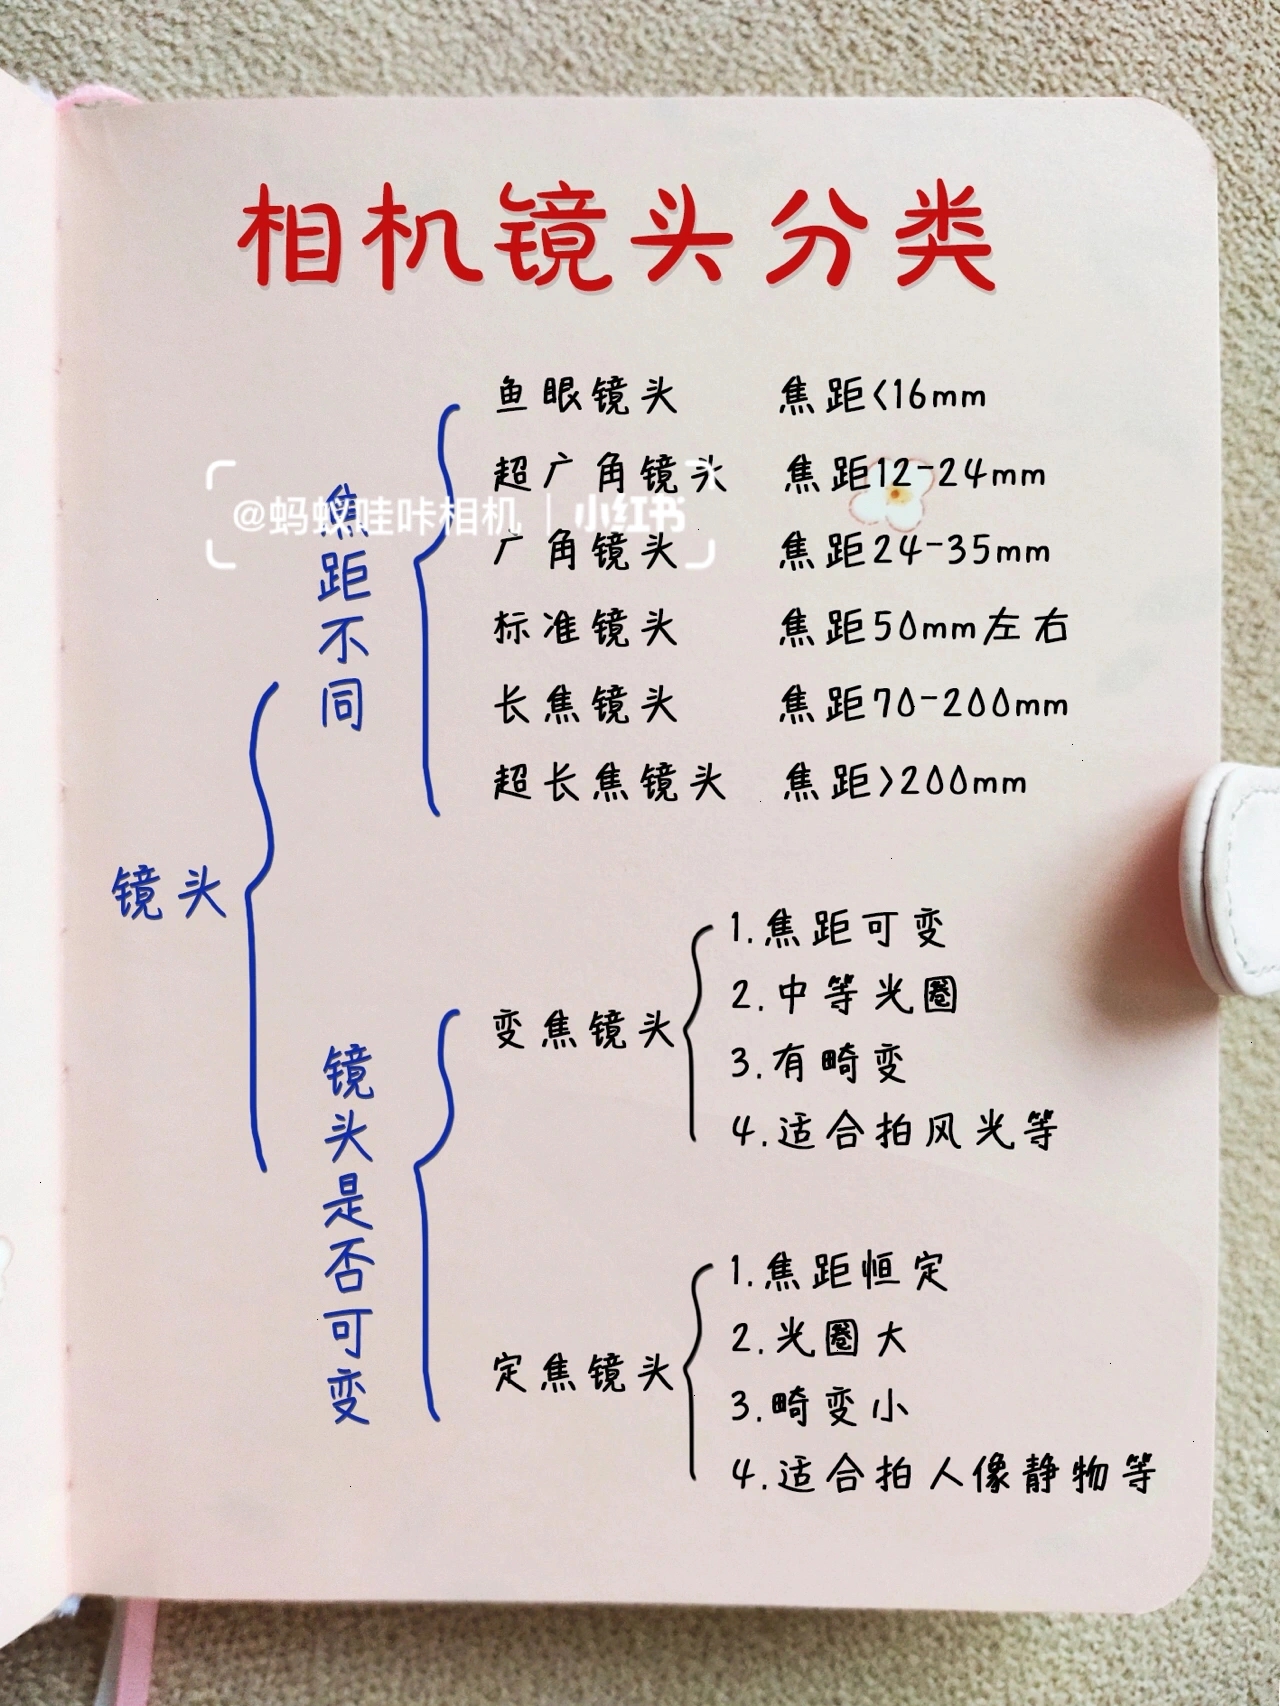 相机镜头分类
镜头
焦距不同
鱼眼镜头 焦距<16mm
超广角镜头 焦距12-24mm
@蚂蚁哇咔相机 | 小红书
广角镜头 焦距24-35mm
标准镜头 焦距50mm左右
长焦镜头 焦距70-200mm
超长焦镜头 焦距>200mm
镜头是否可变
变焦镜头
1.焦距可变
2.中等光圈
3.有畸变
4.适合拍风光等
定焦镜头
1.焦距恒定
2.光圈大
3.畸变小
4.适合拍人像静物等